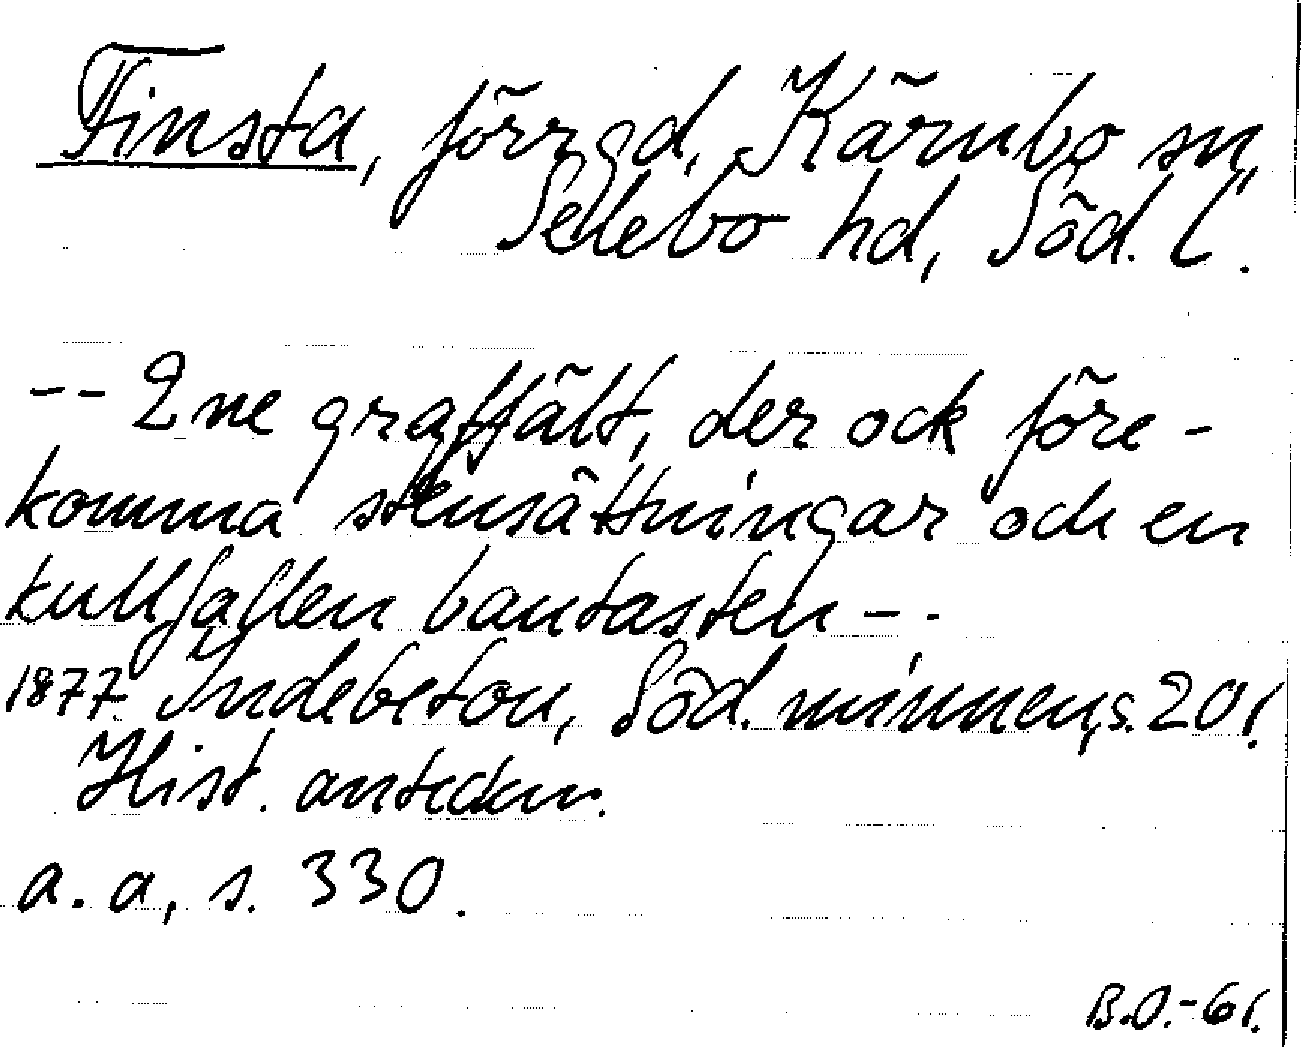 Finsta, förr gd, Kärnbo sn,
Selebo hd, Söd. l.
-- 2ne graffält, der ock före-
komma stensättningar och en
kullfallen bautasten --.
1877 Indebetou, Söd. minnen, s. 201.
Hist. anteckn.
a. a, s. 330.
B.O.-61.